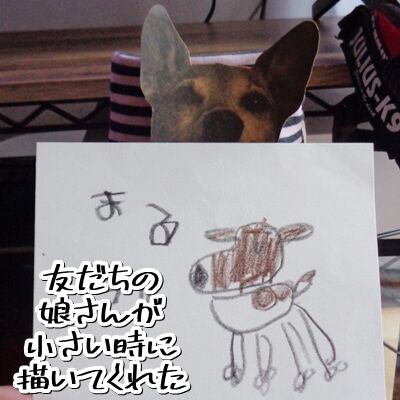 JULIUS-K9
まる
友だちの
娘さんが
小さい時に
描いてくれた